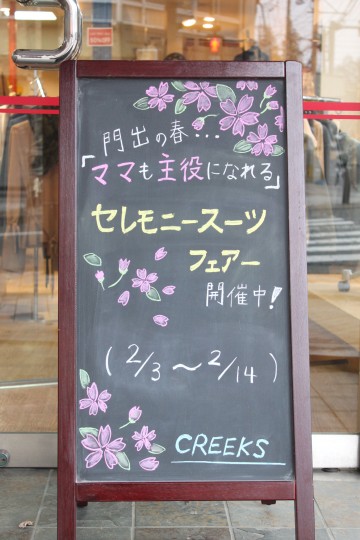 門出の春...
「ママも主役になれる」
セレモニースーツ
フェアー
開催中!
(2/3～2/14)
CREEKS